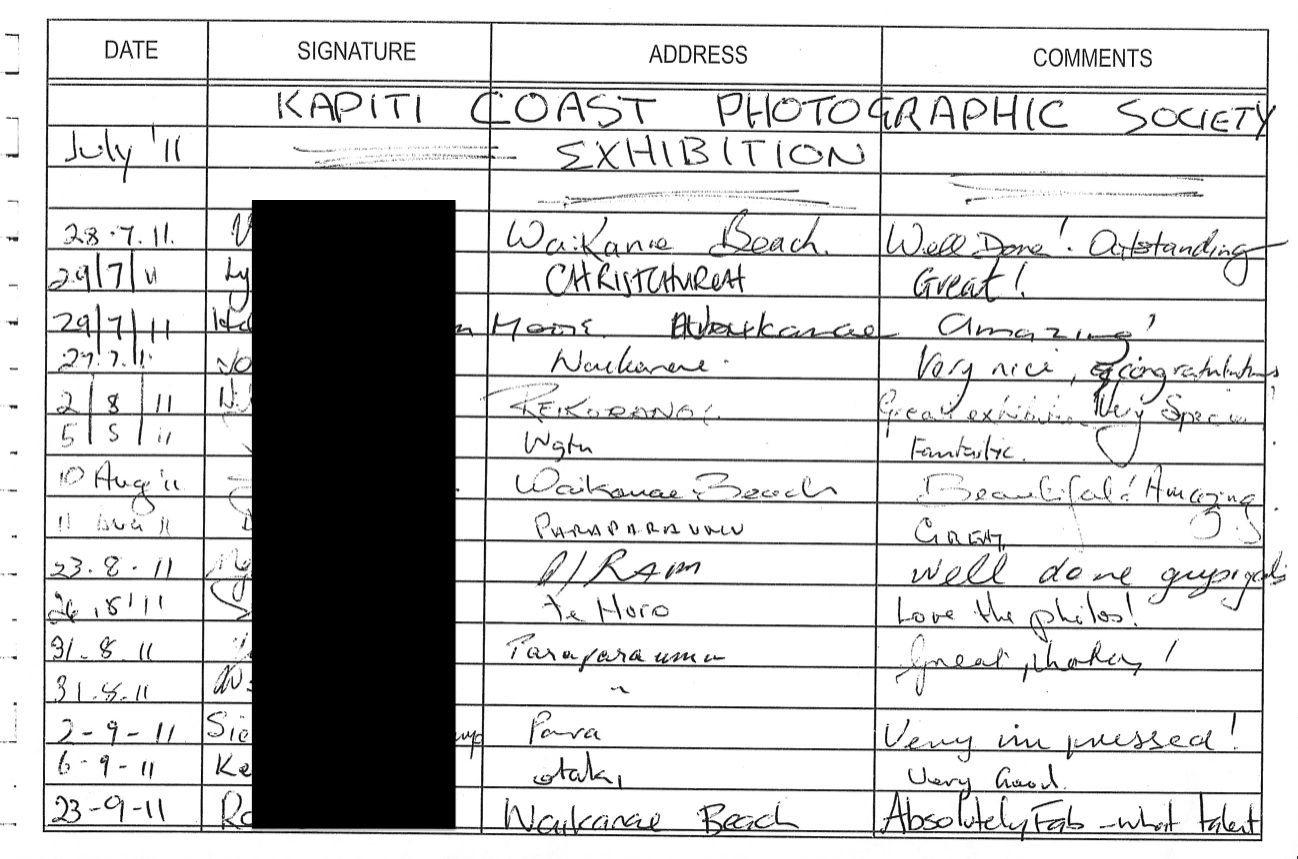 DATE SIGNATURE ADDRESS COMMENTS
KAPITI COAST PHOTOGRAPHIC SOCIETY
July '11 EXHIBITION
28.7.11. Waikanae Beach. Well Done! Outstanding
29/7/11 Ly CHRISTCHURCH Great!
29/7/11 Waikanae amazing!
29.7.11 No Waikanae. Very nice, congratulations
2/8/11 REIKORANGI. Great exhibition Very Special
5/8/11 Wgtn Fantastic.
10 Aug '11 Waikanae Beach Beautiful! Amazing
11 Aug 11 PARAPARAUMU GREAT
23.8.11 P/RAM well done guys/gals
26.8.11 Te Horo Love the photos!
31.8.11 Paraparaumu Great photos!
31.8.11 "
2-9-11 Sie Para Very impressed!
6-9-11 Ke otaki Very Good.
23-9-11 Ro Waikanae Beach Absolutely Fab - what talent